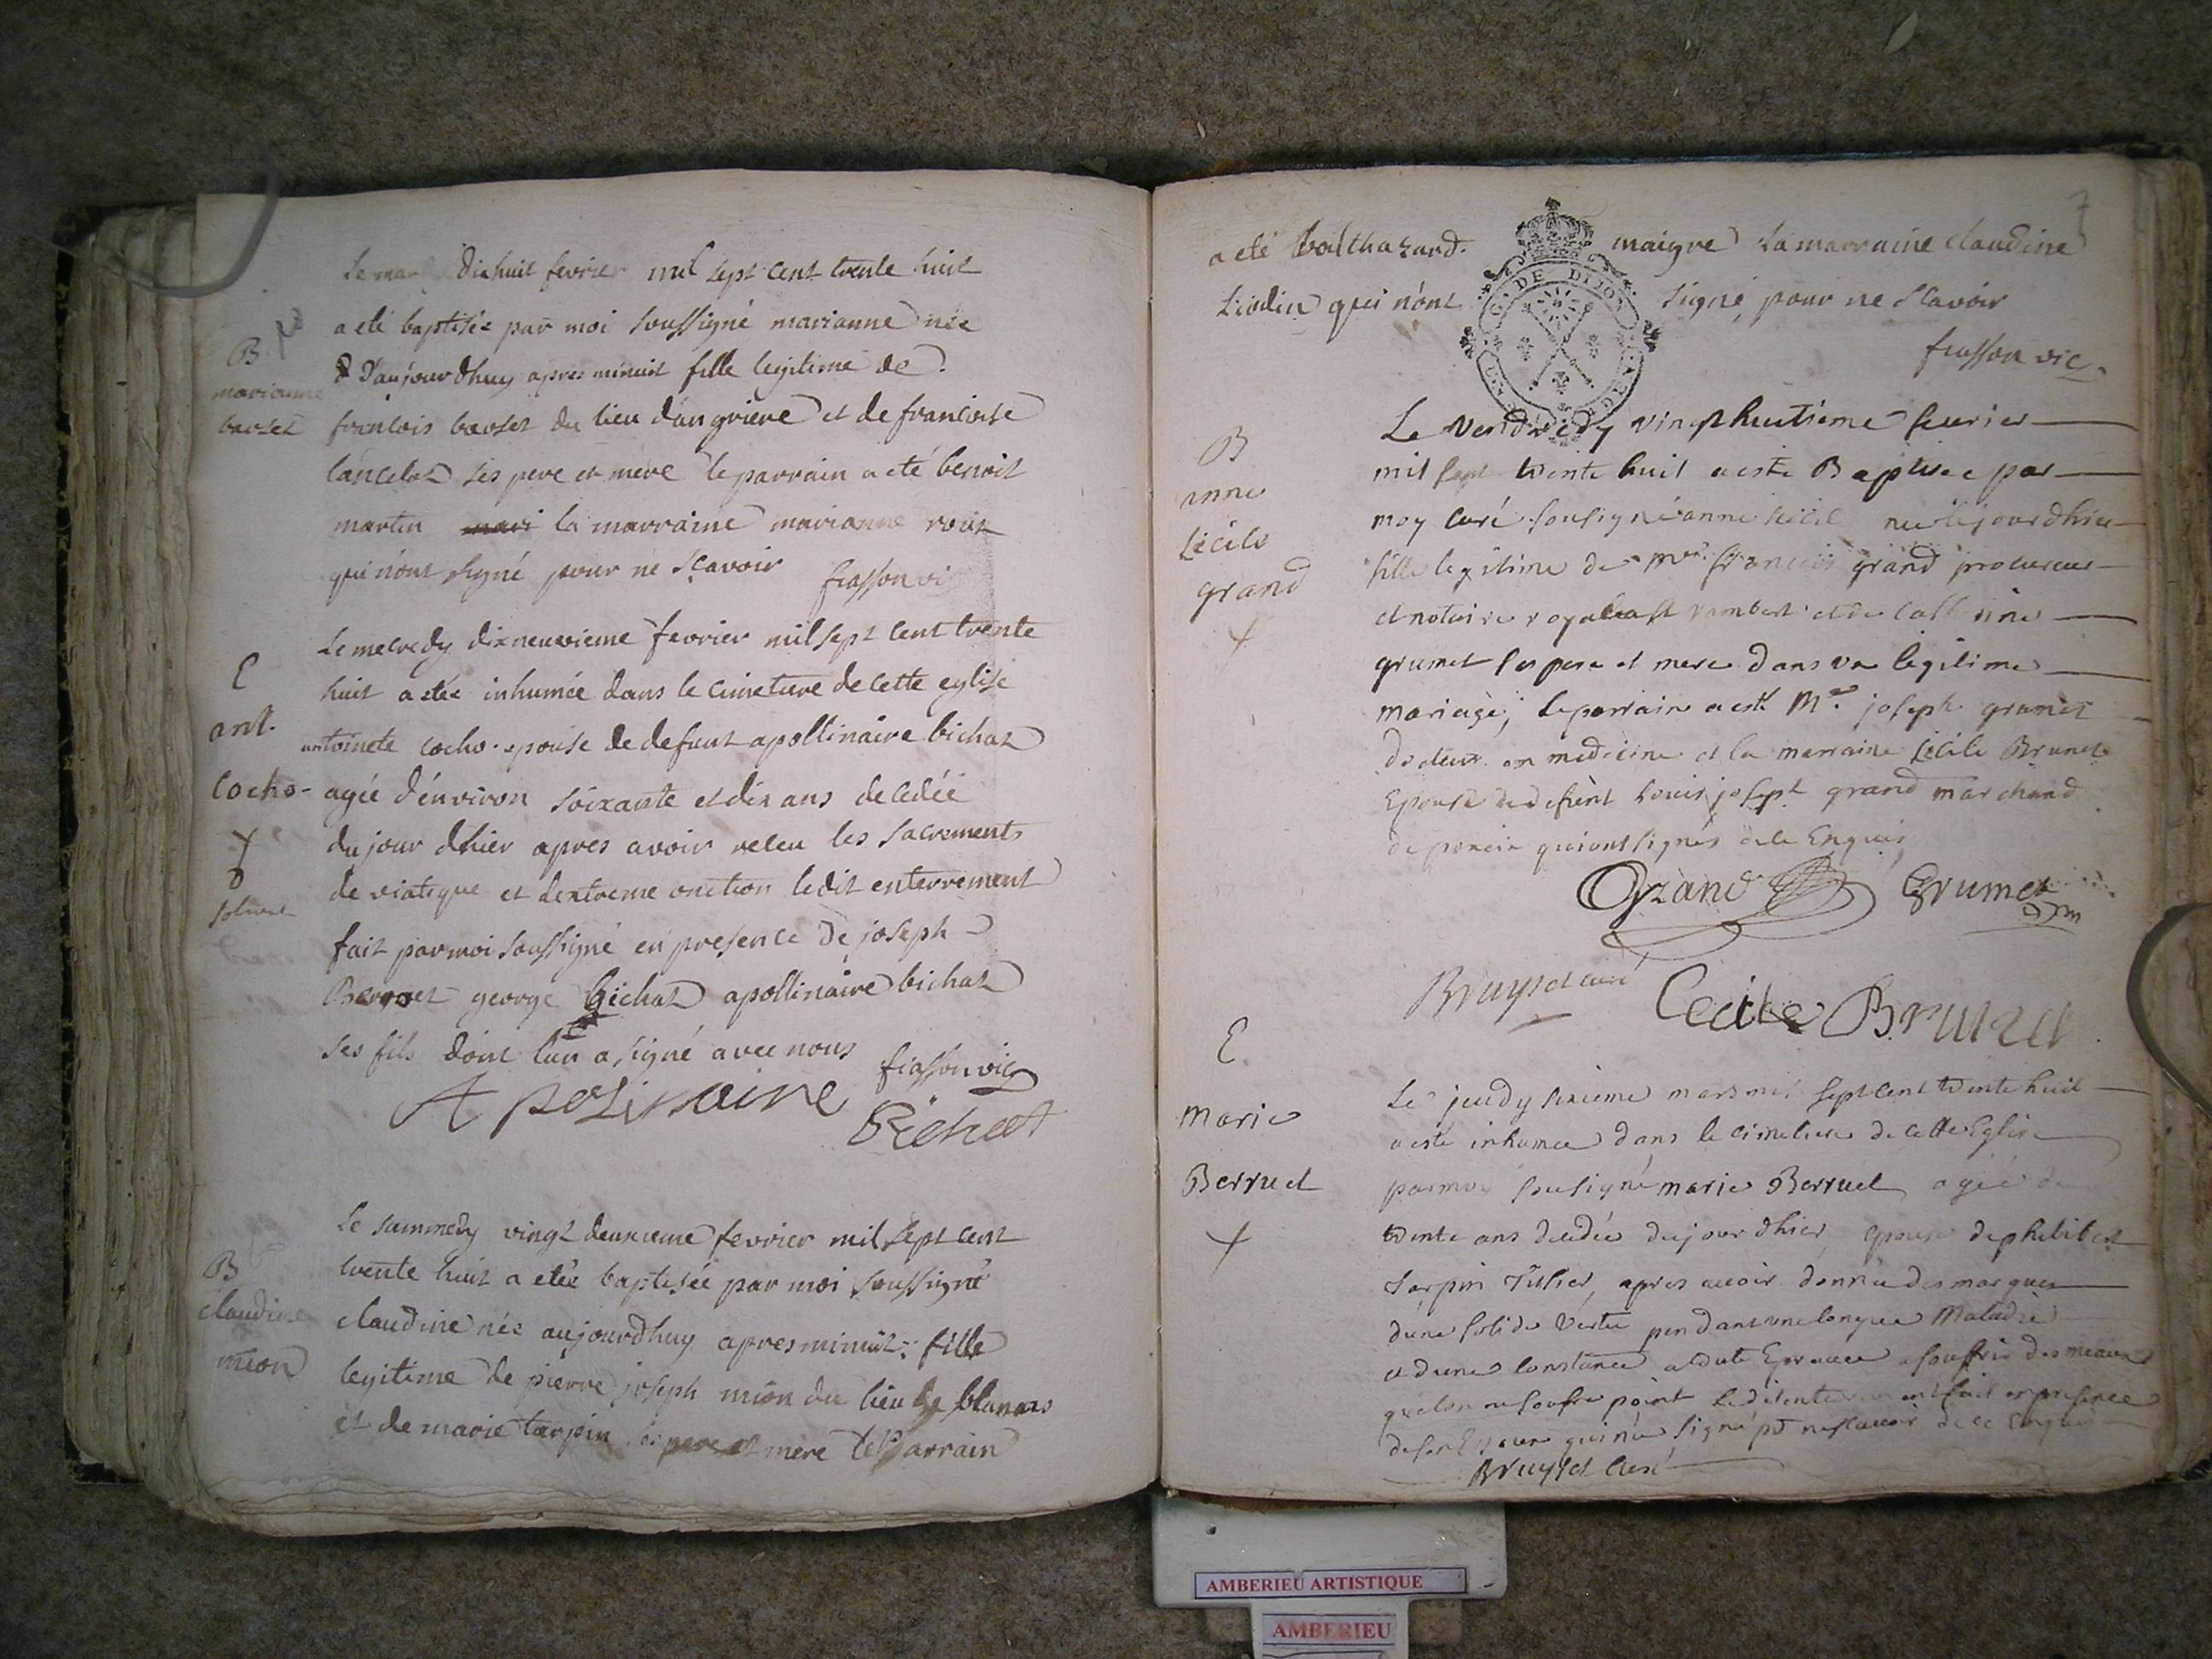 Le mardi dixhuit fevrier mil sept cent trente huit
a eté baptisée par moi soussigné marianne née
d'aujourdhuy apres minuit fille legitime de
B
marianne
barset
francois barset du lieu d'angriere et de francoise
lancelot ses pere et mere le parrain a eté benoit
martin mari la marraine marianne roux
qui n'ont signé pour ne scavoir
frasson vic
Le mecredy dixneuvieme fevrier mil sept cent trente
huit a etée inhumée dans le cimetiere de cette eglise
E
ant.
cocho
antoinete cocho epouse de defunt apollinaire bichat
agée d'environ soixante et dix ans decedée
du jour dhier apres avoir receu les sacrements
de viatique et dextreme onction ledit enterrement
fait par moi soussigné en presence de joseph
george bichat apollinaire bichat
ses fils dont lun a signé avec nous
frasson vic
Apolinaire
Bichat
Le sammedy vingt deuxieme fevrier mil sept cent
trente huit a etée baptisée par moi soussigné
B
claudine
mion
claudine née aujourdhuy apres minuit fille
legitime de pierre joseph mion du lieu de blanas
et de marie tarpin ses pere et mere le Parrain
7
a eté balthazard maigre la marraine claudine
qui n'ont signé pour ne scavoir
frasson vic.
G. DE DIJON
B
anne
Cécile
grand
Le vendredy vingt huitieme feurier
mil sept trente huit a esté Baptisée par
moy curé sousigné anne cécile née
fille legitime de mre francois grand procureur
et notaire royal a st rambert et de catherine
grumet ses pere et mere dans vn legitime
mariage, le parrain a esté Mr. joseph grumet
docteur en medicine et la marraine Cécile Brunet
Epouse de defunt Louis joseph grand marchand
qui ont signés de ce Enquis
Grand
Grumet
Bruyset curé
Cecile Brunet
E
Marie
Berruet
Le jeudy sixieme mars mil sept cent trente huit
a esté inhumée dans le cimetiere de cette Eglise
par moy sousigné marie Berruet agée de
trente ans decedée du jour dhier, epouse de philibert
tarpin apres auoir donnée des marques
dune solide vertu pendant une longue Maladie
et dune constance a toute Epreuve a souffrir des meaux
quelon ne soufre point Ledit enterrement fait en presence
de son Epoux qui n'a signé pr ne scauoir de ce Enquis
Bruyset curé
AMBERIEU ARTISTIQUE
AMBERIEU